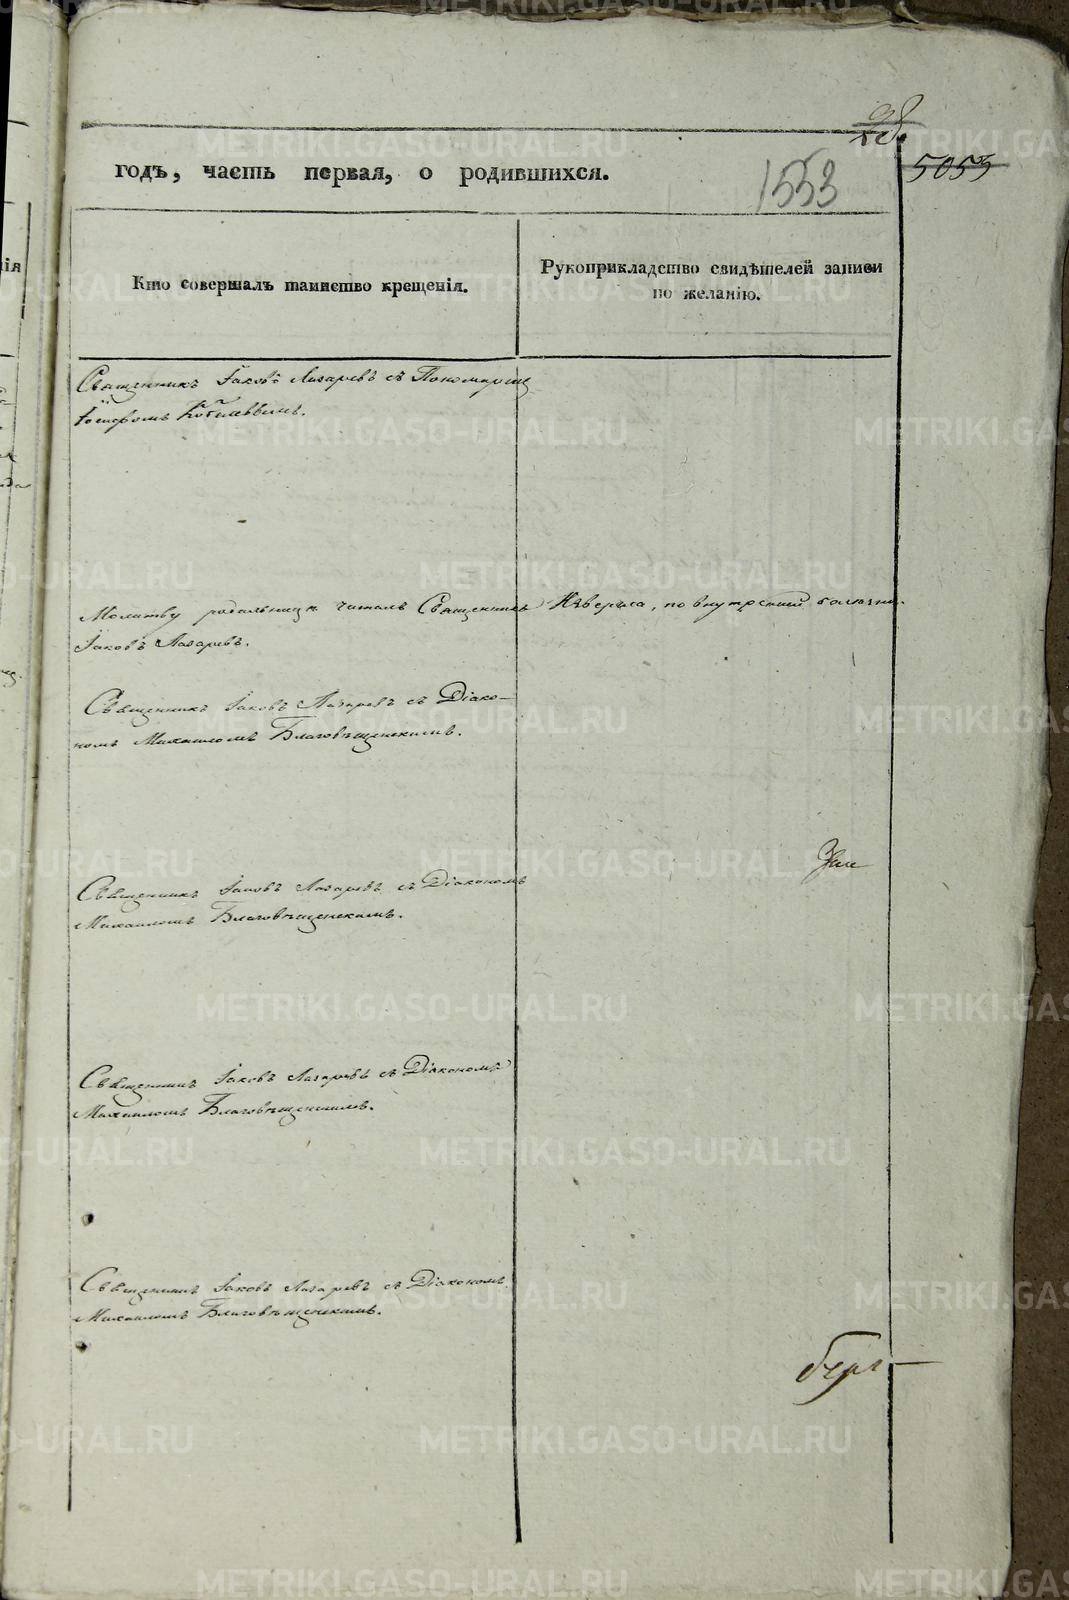 5055
годъ, часть первая, о родившихся.
1553
Кто совершалъ таинство крещенія.
Рукоприкладство свидѣтелей записи
по желанію.
Священникъ Іаковъ Лазаревъ съ Пономаремъ
Іосифомъ
Молитву родильницѣ читалъ Священникъ
Іаковъ Лазаревъ.
по внутренней болезни.
Священникъ Іаковъ Лазаревъ съ Діако-
номъ Михаиломъ Благовѣщенскимъ.
Священникъ Іаковъ Лазаревъ съ Діакономъ
Михаиломъ Благовѣщенскимъ.
Священникъ Іаковъ Лазаревъ съ Діакономъ
Михаиломъ Благовѣщенскимъ.
Священникъ Іаковъ Лазаревъ съ Діакономъ
Михаиломъ Благовѣщенскимъ.
METRIKI.GASO-URAL.RU